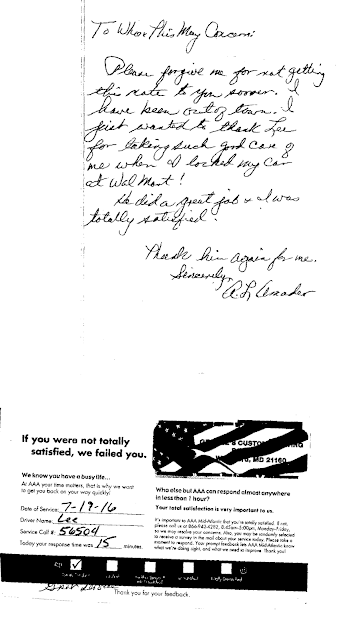 To Whom This May Concern:
Please forgive me for not getting
this note to you sooner. I
have been out of town. I
just wanted to thank Lee
for taking such good care of
me when I locked my car
at Wal Mart!
He did a great job & I was
totally satisfied.
Thank him again for me.
Sincerely,
If you were not totally
satisfied, we failed you.
We know you have a busy life...
At AAA your time matters, that is why we want
to get you back on your way quickly!
Date of Service: 7-19-16
Driver Name: Lee
Service Call #: 56504
Today your response time was 15 minutes.
'S CUSTOM
MD 21160
Who else but AAA can respond almost anywhere
in less than 1 hour?
Your total satisfaction is very important to us.
It's important to AAA Mid-Atlantic that you're totally satisfied. If not,
please call us at 866-942-4292, 8:45am-5:00pm, Monday-Friday,
so we may resolve your concerns. Also, you may be randomly selected
to receive a survey in the mail about your service today. Please take a
moment to respond. Your prompt feedback lets AAA Mid-Atlantic know
what we're doing right, and what we need to improve. Thank you!
Thank you for your feedback.